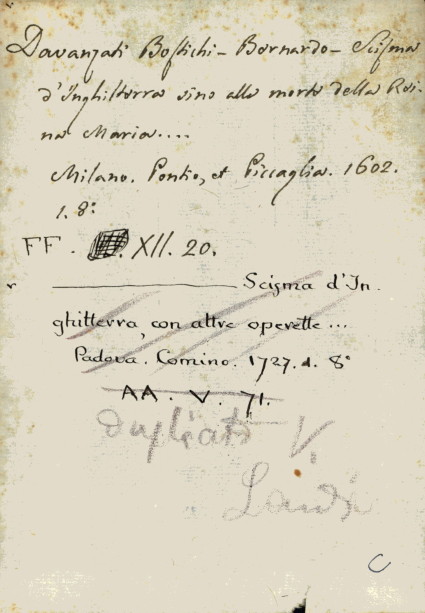 Davanzati Bostichi - Bernardo - Scisma
d'Inghilterra sino alla morte della Rei-
na Maria....
Milano. Pontio, et Piccaglia. 1602.
1. 8º
FF. XII. 20.
Scisma d'In-
ghilterra, con altre operette...
Padova. Comino. 1727. 1. 8º
AA. V. 71.
duplicato V.
C